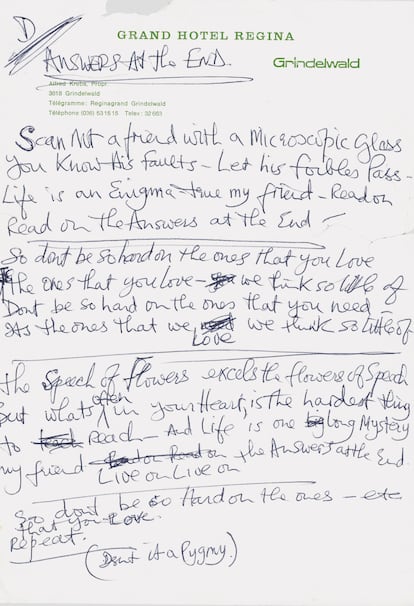 D
GRAND HOTEL REGINA
Grindelwald
Answers At the End.
Alfred Krebs, Propr.
3818 Grindelwald
Télégramme: Reginagrand Grindelwald
Téléphone (036) 53 15 15 Telex: 32 663
Scan Not a friend with a Microscopic Glass
You Know His faults - Let his foibles Pass -
Life is an Enigma - true my friend - Read on
Read on the Answers at the End -
So dont be so hard on the ones that you Love
the ones that you Love - we think so little of
Dont be so hard on the ones that you need -
Its the ones that we we think so little of
Love
the Speech of flowers excels the flowers of Speech
often
But whats in your Heart, is the hardest thing
to Reach - And Life is one long Mystery
my friend the Answers at the End.
Live on Live on
Soo dont be so Hard on the ones - etc
that you Love.
Repeat.
(Isnt it a Pygmy.)